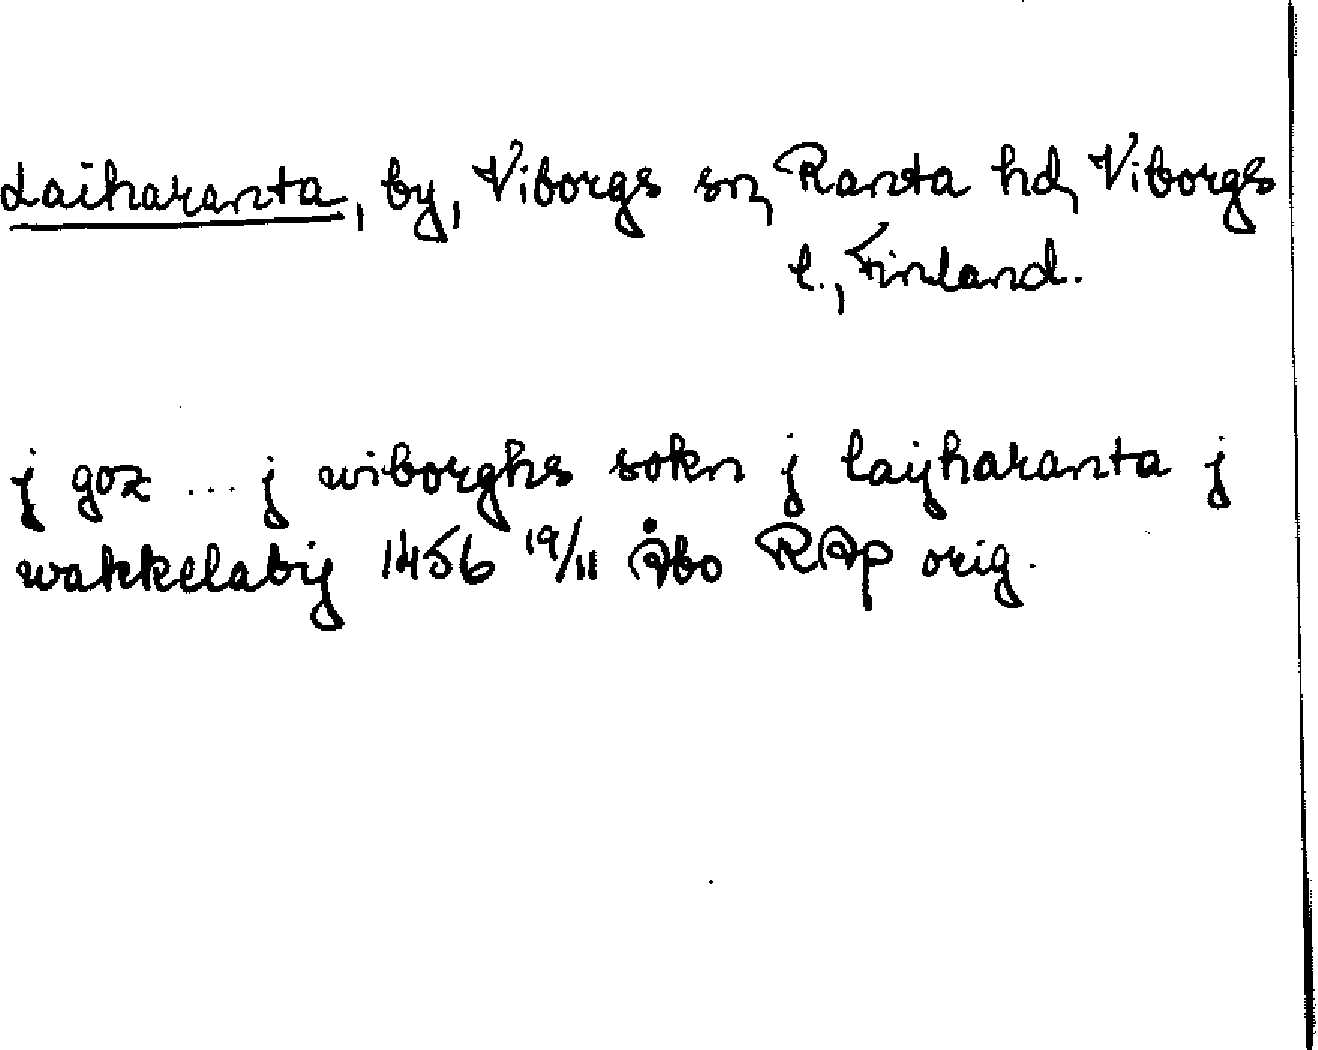 Laiharanta, by, Viborgs sn, Ranta hd, Viborgs
l., Finland.
j goz ... j wiborghs sokn j laijharanta j
wakkelabij 1456 19/11 Åbo RAp orig.